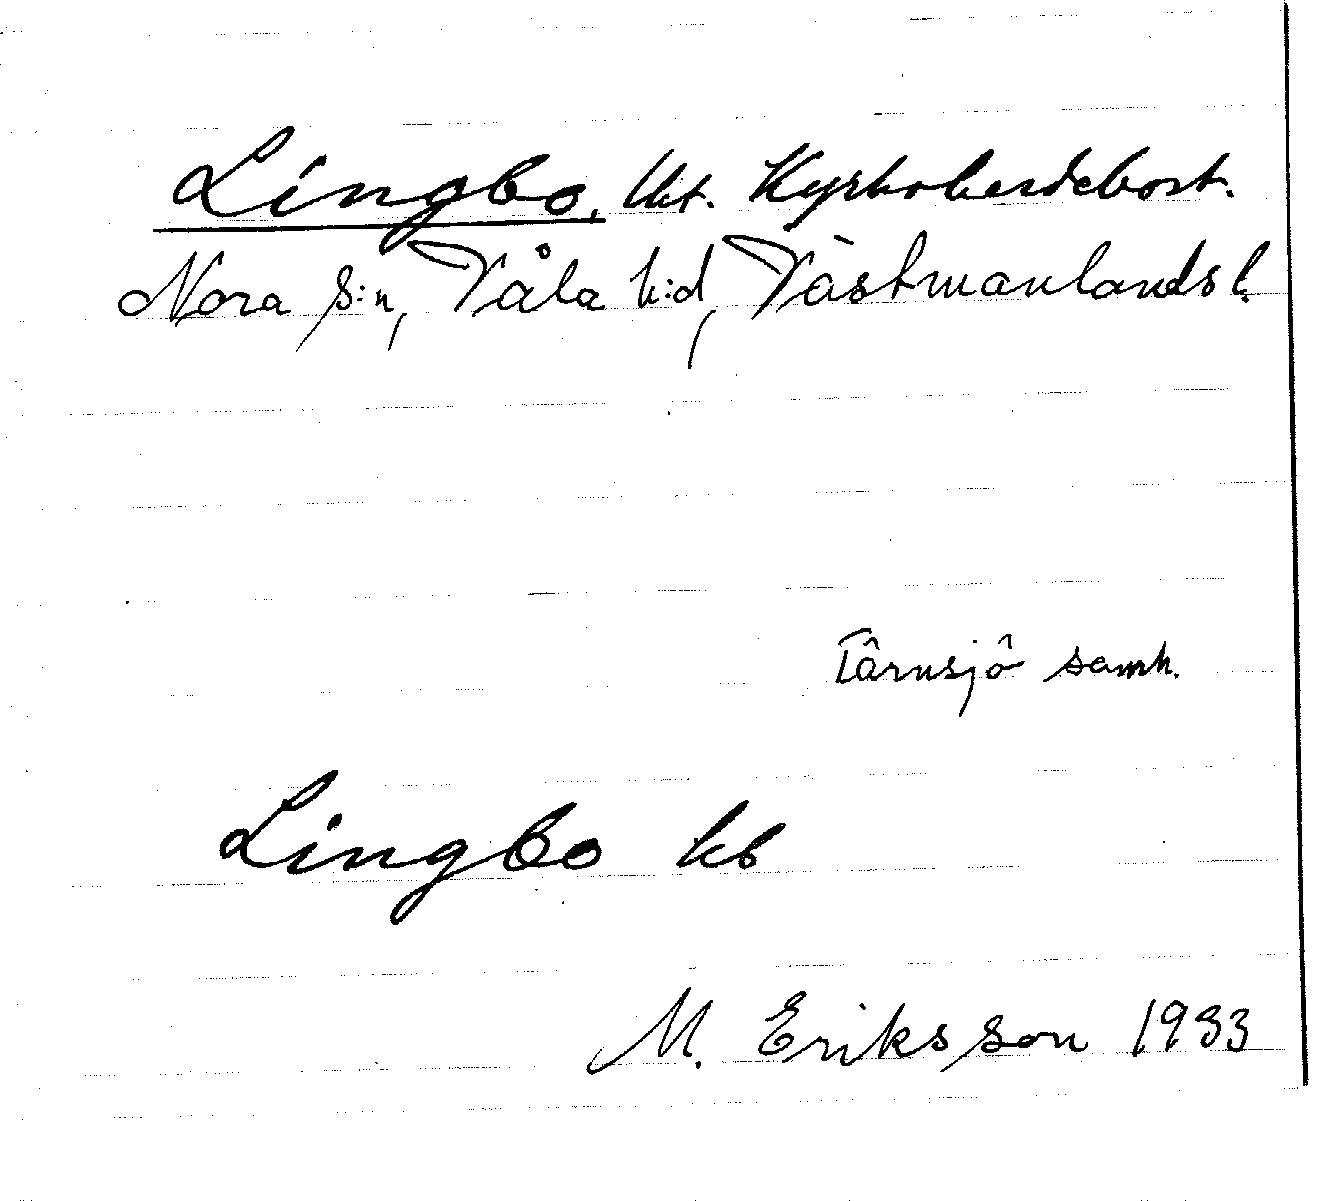 Lingbo, lht. Kyrkoherdebost.
Nora s:n, Våla h:d, Västmanlands l.
Tärnsjö samh.
Lingbo kb
M. Eriksson 1933